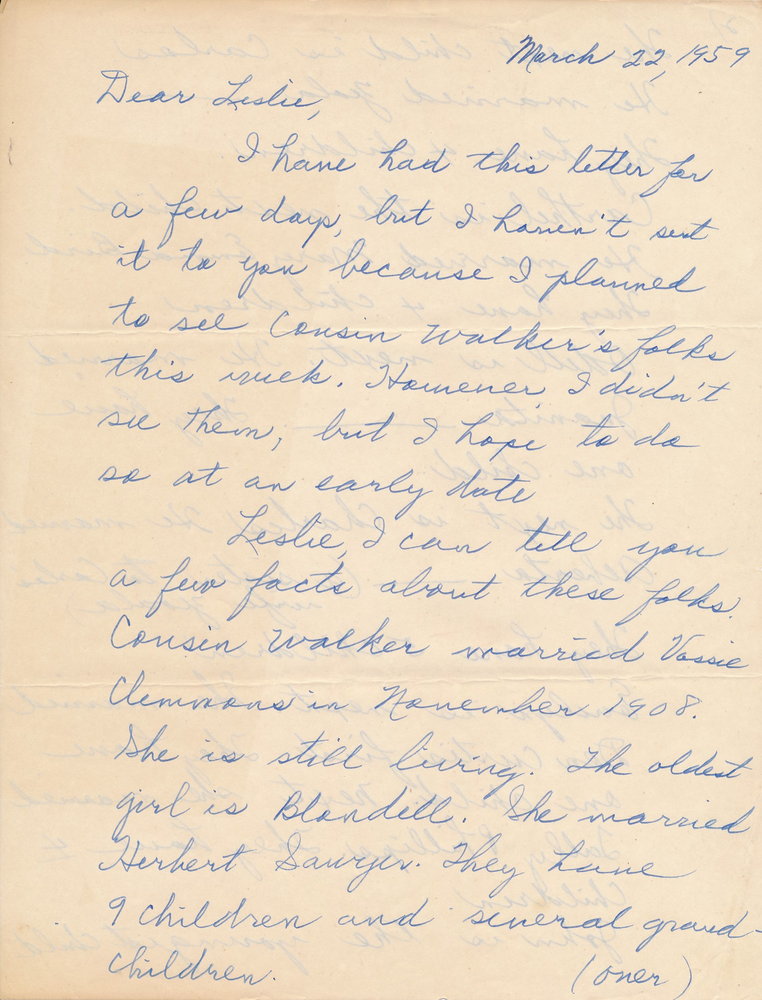 March 22, 1959
Dear Leslie,
I have had this letter for
a few days, but I haven't sent
it to you because I planned
to see Cousin Walker's folks
this week. However I didn't
see them, but I hope to do
so at an early date
Leslie, I can tell you
a few facts about these folks.
Cousin Walker married Vassie
Clemmons in November 1908.
She is still living. The oldest
girl is Blondell. She married
Herbert Sawyer. They have
9 children and several grand-
children.
(over)